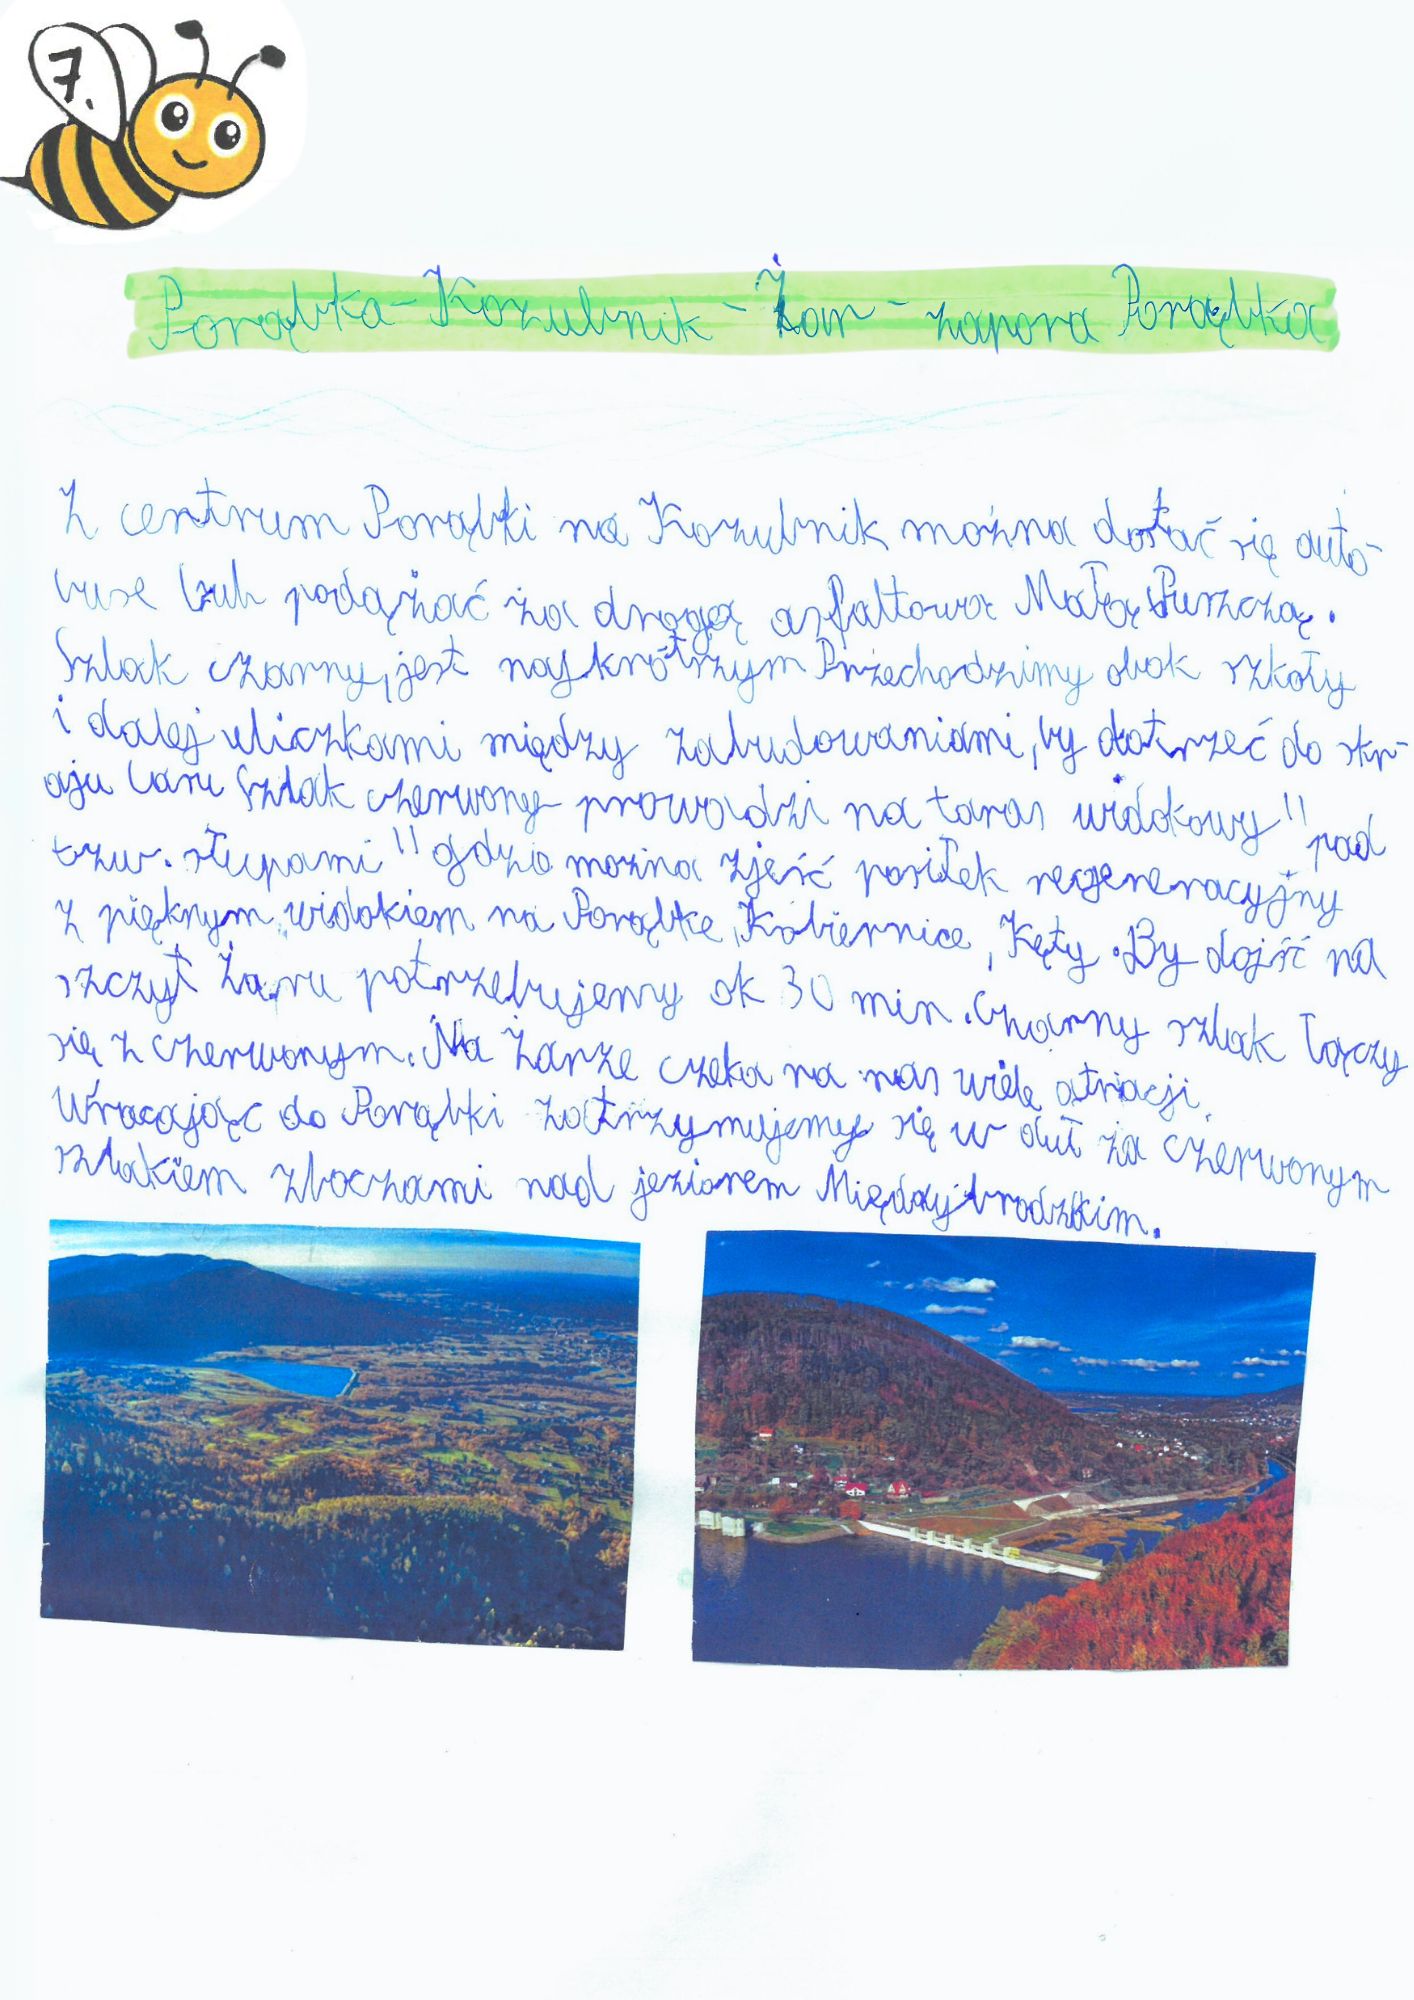 7.
Porąbka - Kozubnik - Żar - zapora Porąbka
Z centrum Porąbki na Kozubnik można dostać się auto-
buse lub podążać za drogą asfaltowa Małą Puszczą.
Szlak czarny, jest najkrótrzym Przechodzimy obok szkoły
i dalej uliczkami między zabudowaniami, by dotrzeć do skr-
aju lasu Szlak czerwony prowadzi na taras widokowy "pod
tzw. słupami" gdzie można zjeść posiłek regeneracyjny
z pięknym widokiem na Porąbke, Kobiernice, Kęty. By dojść na
szczyt Żaru potrzebujemy ok 30 min. Czarny szlak łączy
się z czerwonym. Na Żarze czeka na nas wiele atriacji.
Wracając do Porąbki zatrzymujemy się w duł za czerwonym
szlakiem zboczami nad jeziorem Międzybrodzkim.